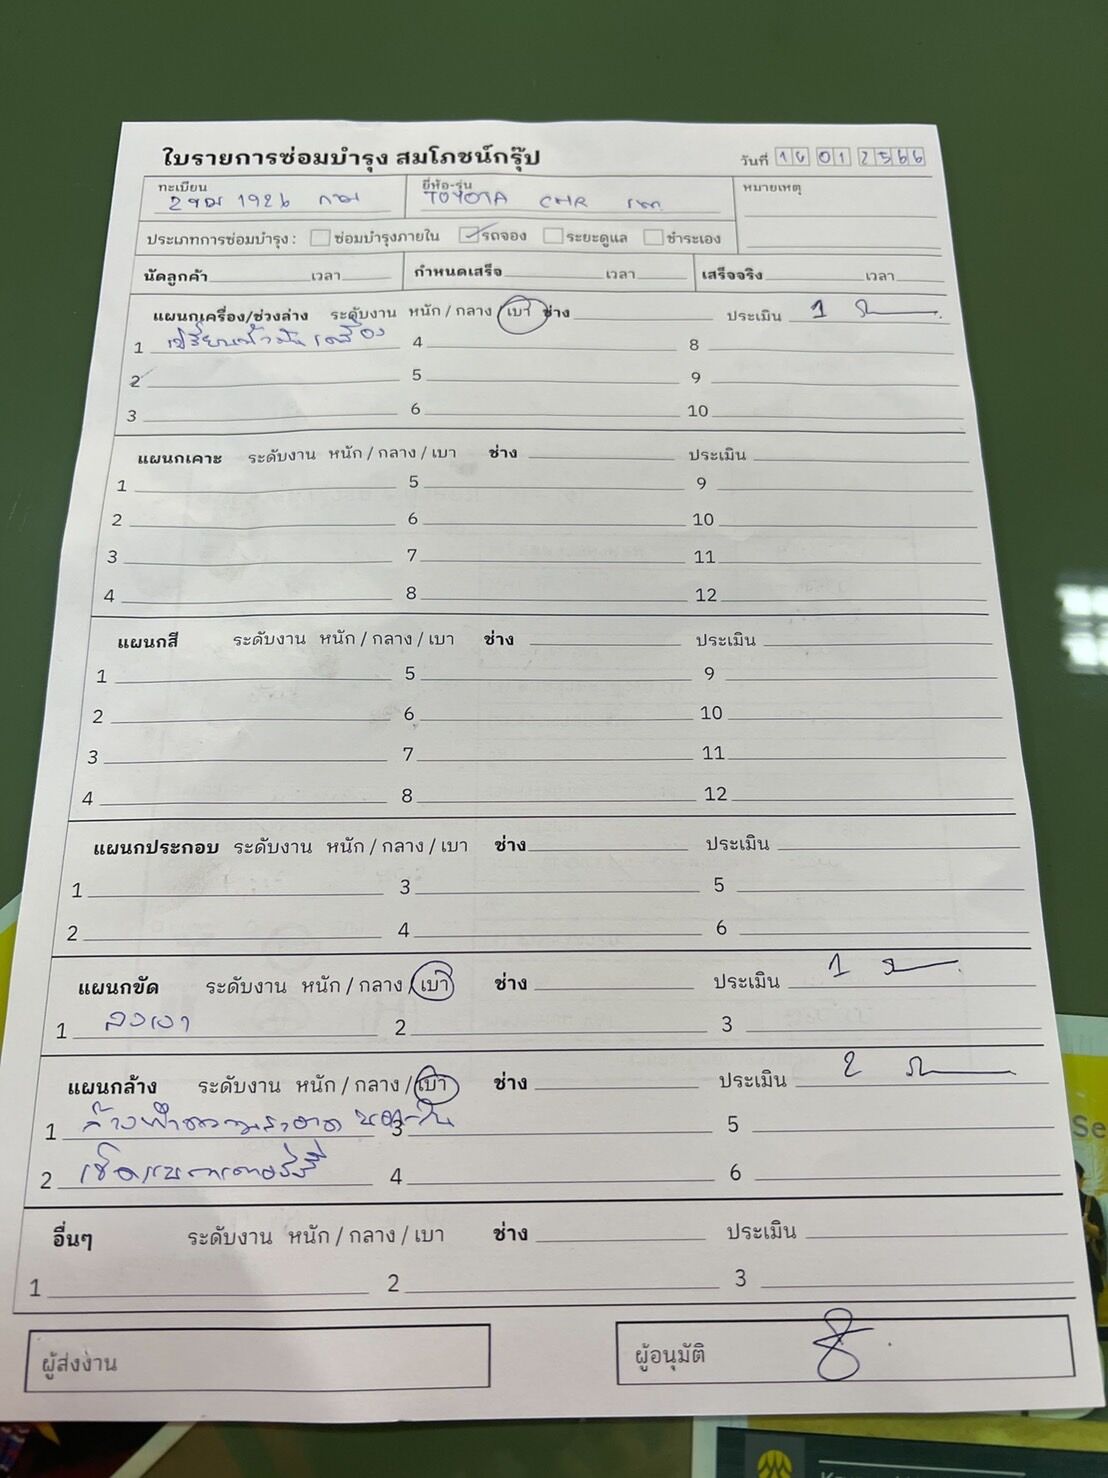 ใบรายการซ่อมบำรุง สมโภชน์กรุ๊ป
วันที่ 16 01 2566
ทะเบียน ยี่ห้อ-รุ่น หมายเหตุ
1926 กท TOYOTA CHR เทา
ประเภทการซ่อมบำรุง : ซ่อมบำรุงภายใน รถจอง ระยะดูแล ชำระเอง
นัดลูกค้า เวลา กำหนดเสร็จ เวลา เสร็จจริง เวลา
แผนกเครื่อง/ช่วงล่าง ระดับงาน หนัก / กลาง / เบา ช่าง ประเมิน 1
1 เปลี่ยนน้ำมันเครื่อง 4 8
2 5 9
3 6 10
แผนกเคาะ ระดับงาน หนัก / กลาง / เบา ช่าง ประเมิน
1 5 9
2 6 10
3 7 11
4 8 12
แผนกสี ระดับงาน หนัก / กลาง / เบา ช่าง ประเมิน
1 5 9
2 6 10
3 7 11
4 8 12
แผนกประกอบ ระดับงาน หนัก / กลาง / เบา ช่าง ประเมิน
1 3 5
2 4 6
แผนกขัด ระดับงาน หนัก / กลาง / เบา ช่าง ประเมิน 1
1 ลงเงา 2 3
แผนกล้าง ระดับงาน หนัก / กลาง / เบา ช่าง ประเมิน 2
1 ล้างทำความสะอาด นอก-ใน 3 5
2 เช็คแบตเตอรี่ 4 6
อื่นๆ ระดับงาน หนัก / กลาง / เบา ช่าง ประเมิน
1 2 3
ผู้ส่งงาน ผู้อนุมัติ
Se